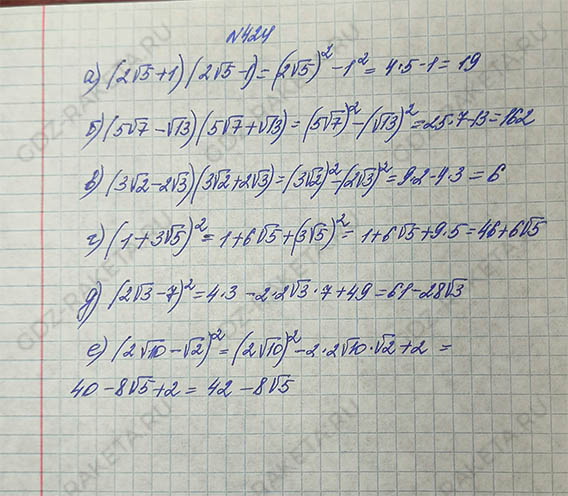 N424
а) (2√5+1)(2√5-1)=(2√5)²-1²=4·5-1=19
б) (5√7-√13)(5√7+√13)=(5√7)²-(√13)²=25·7-13=162
в) (3√2-2√3)(3√2+2√3)=(3√2)²-(2√3)²=9·2-4·3=6
г) (1+3√5)²=1+6√5+(3√5)²=1+6√5+9·5=46+6√5
д) (2√3-7)²=4·3-2·2√3·7+49=61-28√3
е) (2√10-√2)²=(2√10)²-2·2√10·√2+2=
40-8√5+2=42-8√5
GDZ-RAKETA.RU
GDZ-RAKETA.RU
GDZ-RAKETA.RU
GDZ-RAKETA.RU